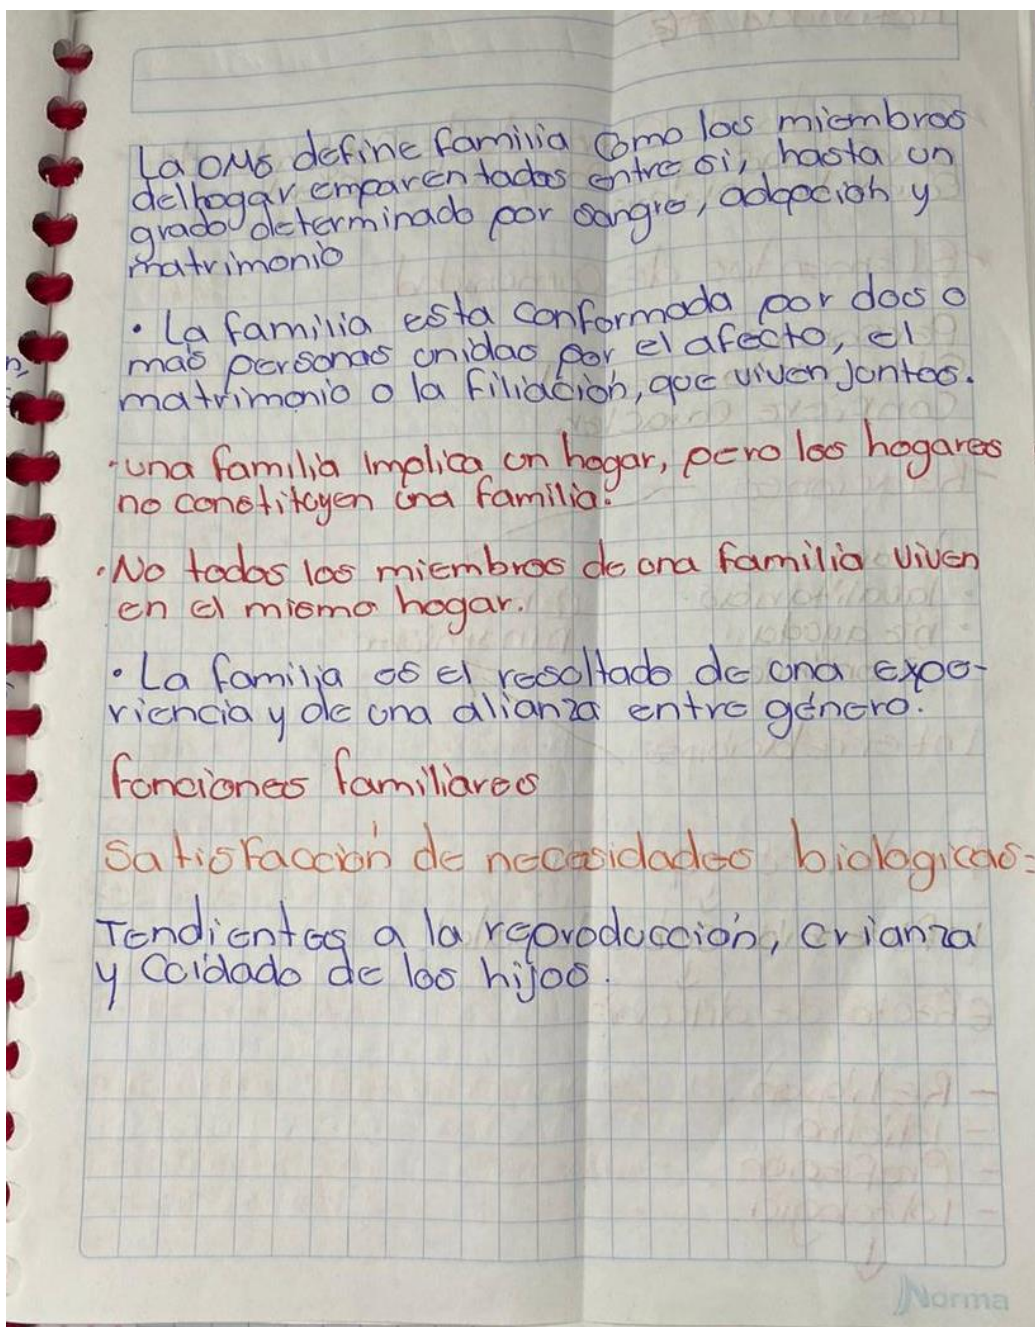 La OMS define familia como los miembros
del hogar emparentados entre si, hasta un
grado determinado por sangre, adopción y
matrimonio
• La familia esta conformada por dos o
más personas unidas por el afecto, el
matrimonio o la filiación, que viven juntos.
•una familia implica un hogar, pero los hogares
no constituyen una familia.
•No todos los miembros de una familia viven
en el mismo hogar.
• La familia es el resultado de una expe-
riencia y de una alianza entre género.
funciones familiares
Satisfacción de necesidades biologicas=
Tendientes a la reproducción, crianza
y Cuidado de los hijos.
Norma